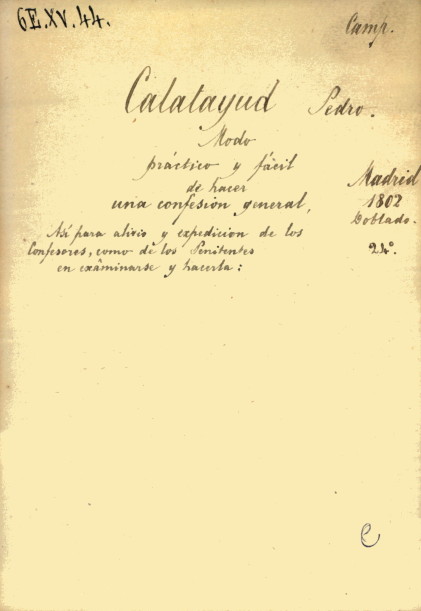 6E.XV.44.
Camp.
Calatayud Pedro.
Modo
práctico y fácil
de hacer
una confesión general,
Madrid
1802
Doblado.
24º.
Así para alivio y expedicion de los
Confesores, como de los Penitentes
en exâminarse y hacerla:
C